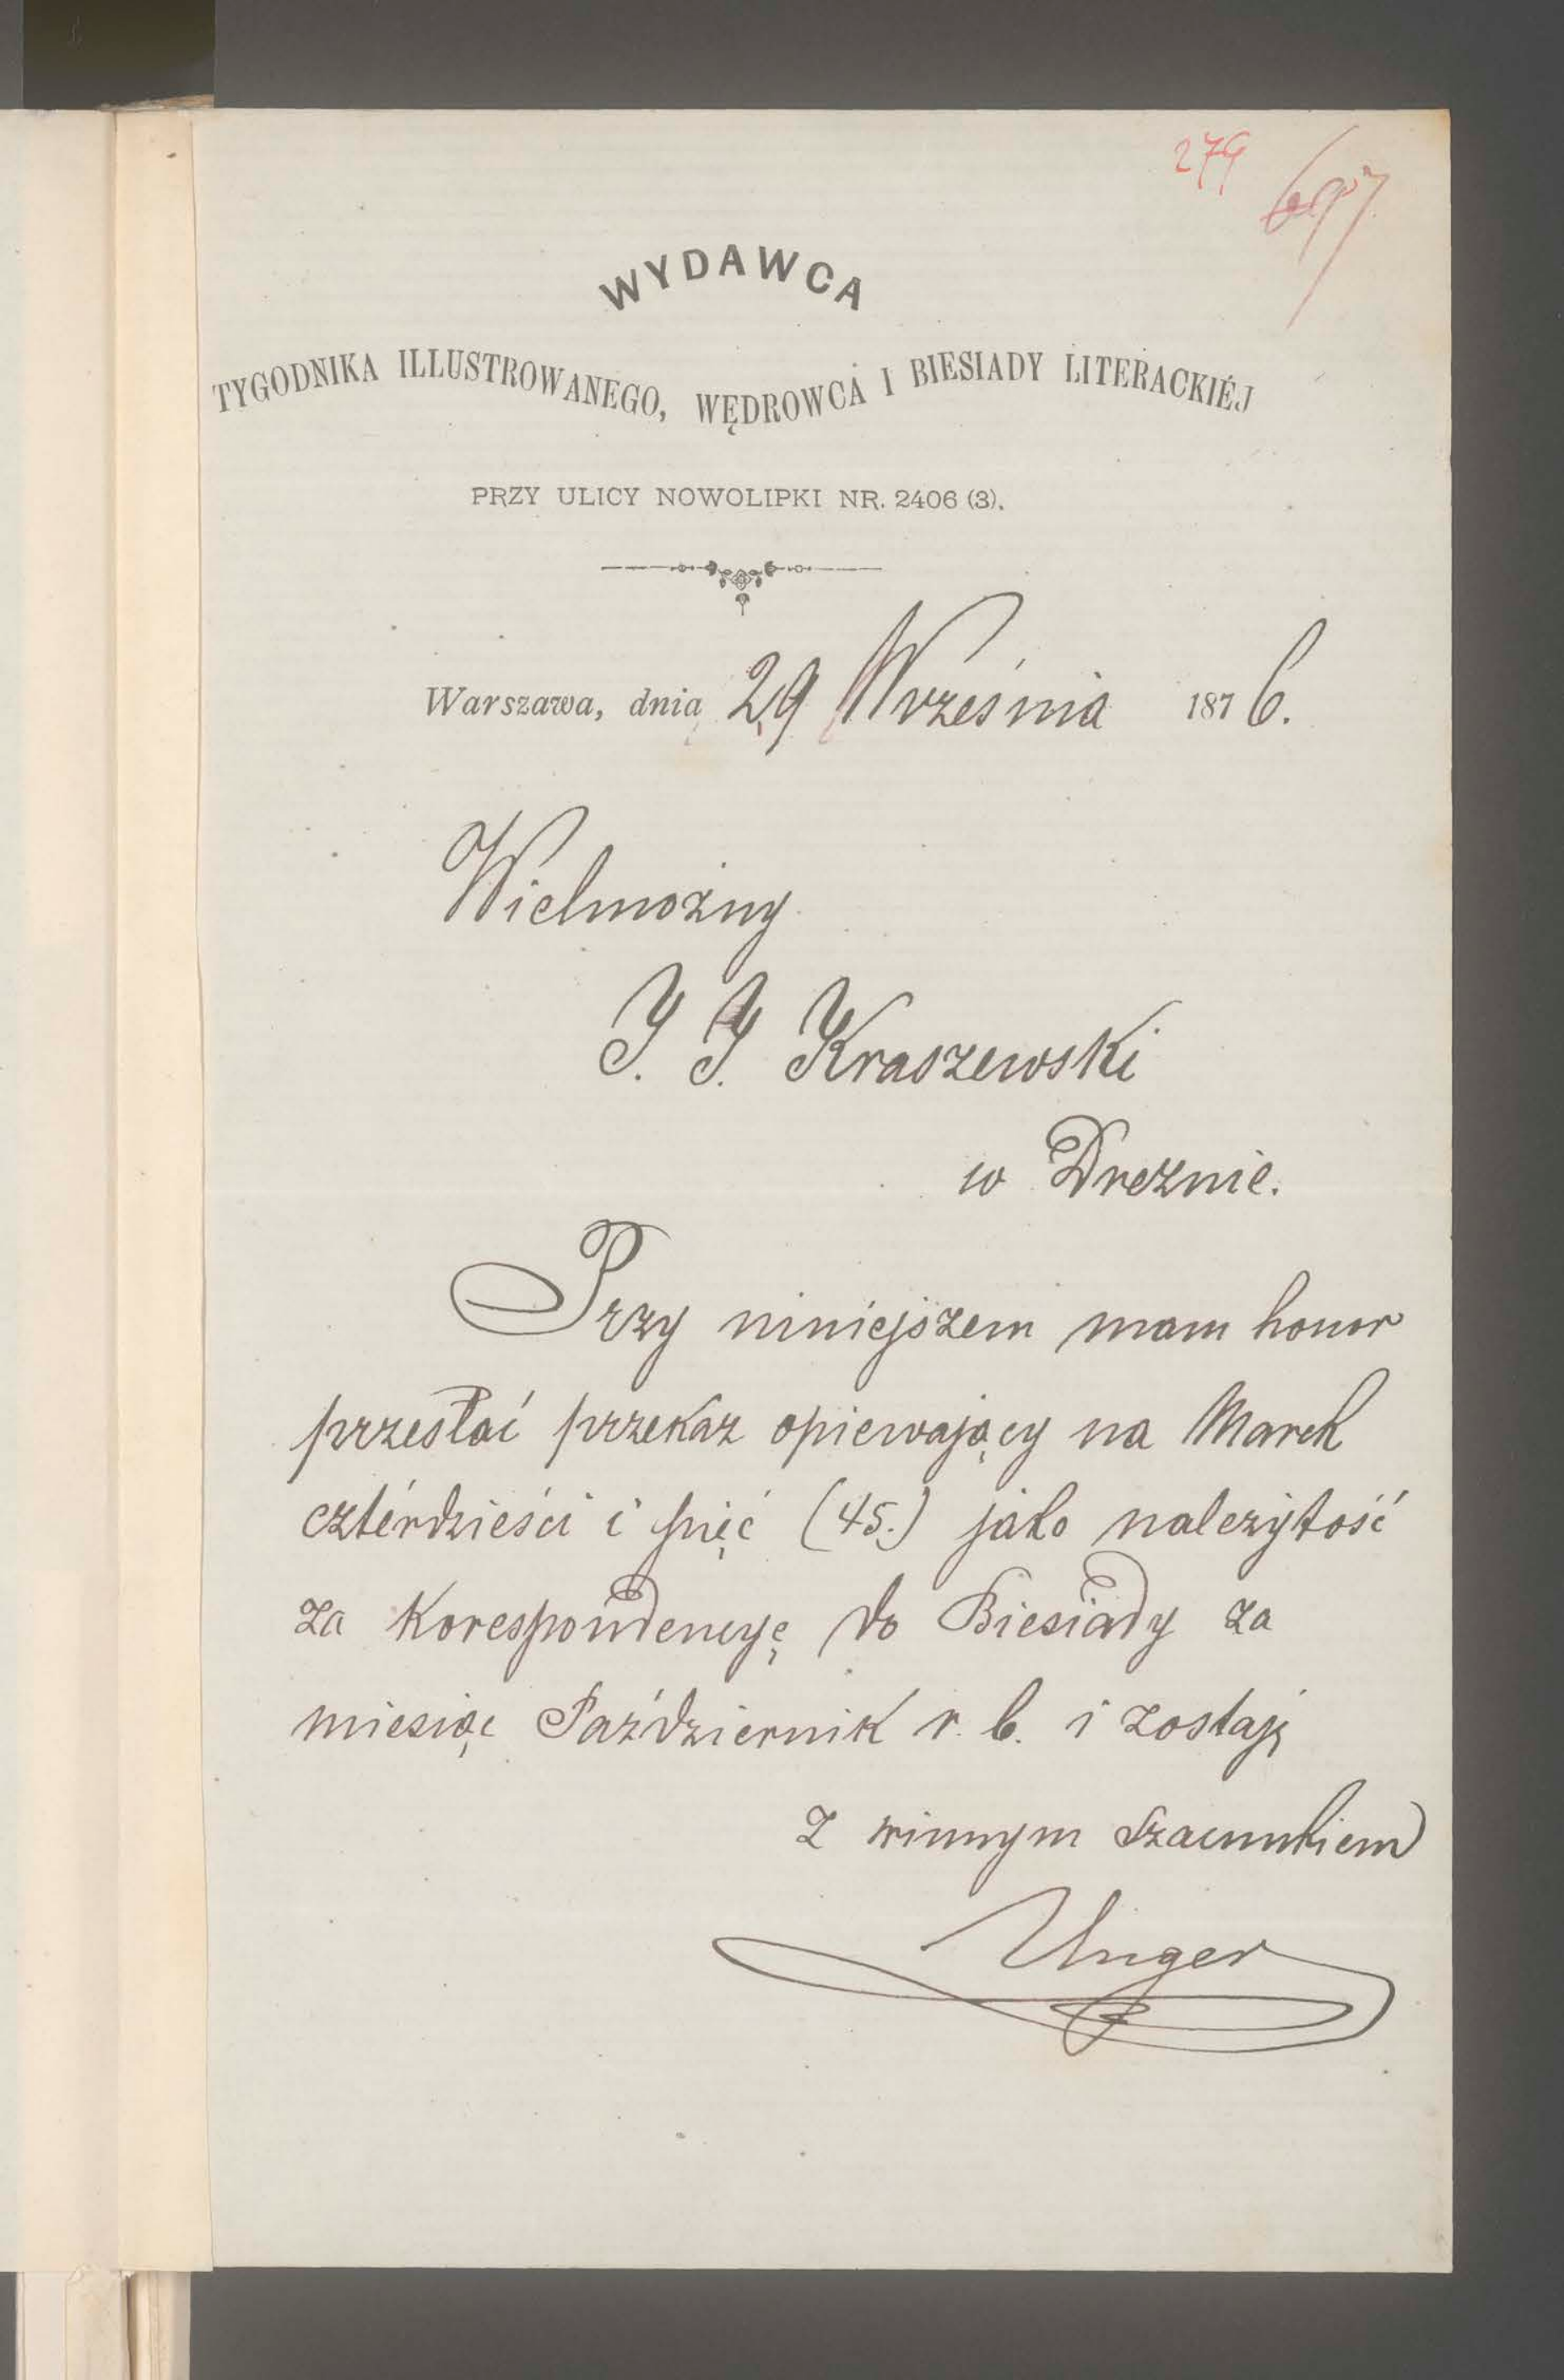 279 697
WYDAWCA
TYGODNIKA ILLUSTROWANEGO, WĘDROWCA I BIESIADY LITERACKIÉJ
PRZY ULICY NOWOLIPKI NR. 2406 (3).
Warszawa, dnia 29 Września 1876.
Wielmożny
J. J. Kraszewski
w Dreznie.
Przy niniejszem mam honor
przesłać przekaz opiewający na Marek
cztérdzieści i pięć (45.) jako należytość
za Korespondencyę do Biesiady za
miesiąc Październik r. b. i zostaję
z winnym szacunkiem
Unger